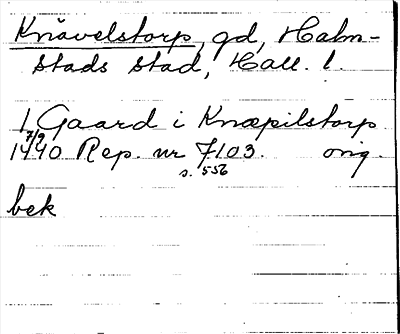 Knävelstorp, gd, Halm-
stads stad, Hall. l.
1 Gaard i Knæpilstorp
7/9
1440 Rep. nr 7103. orig.
s. 556
bek